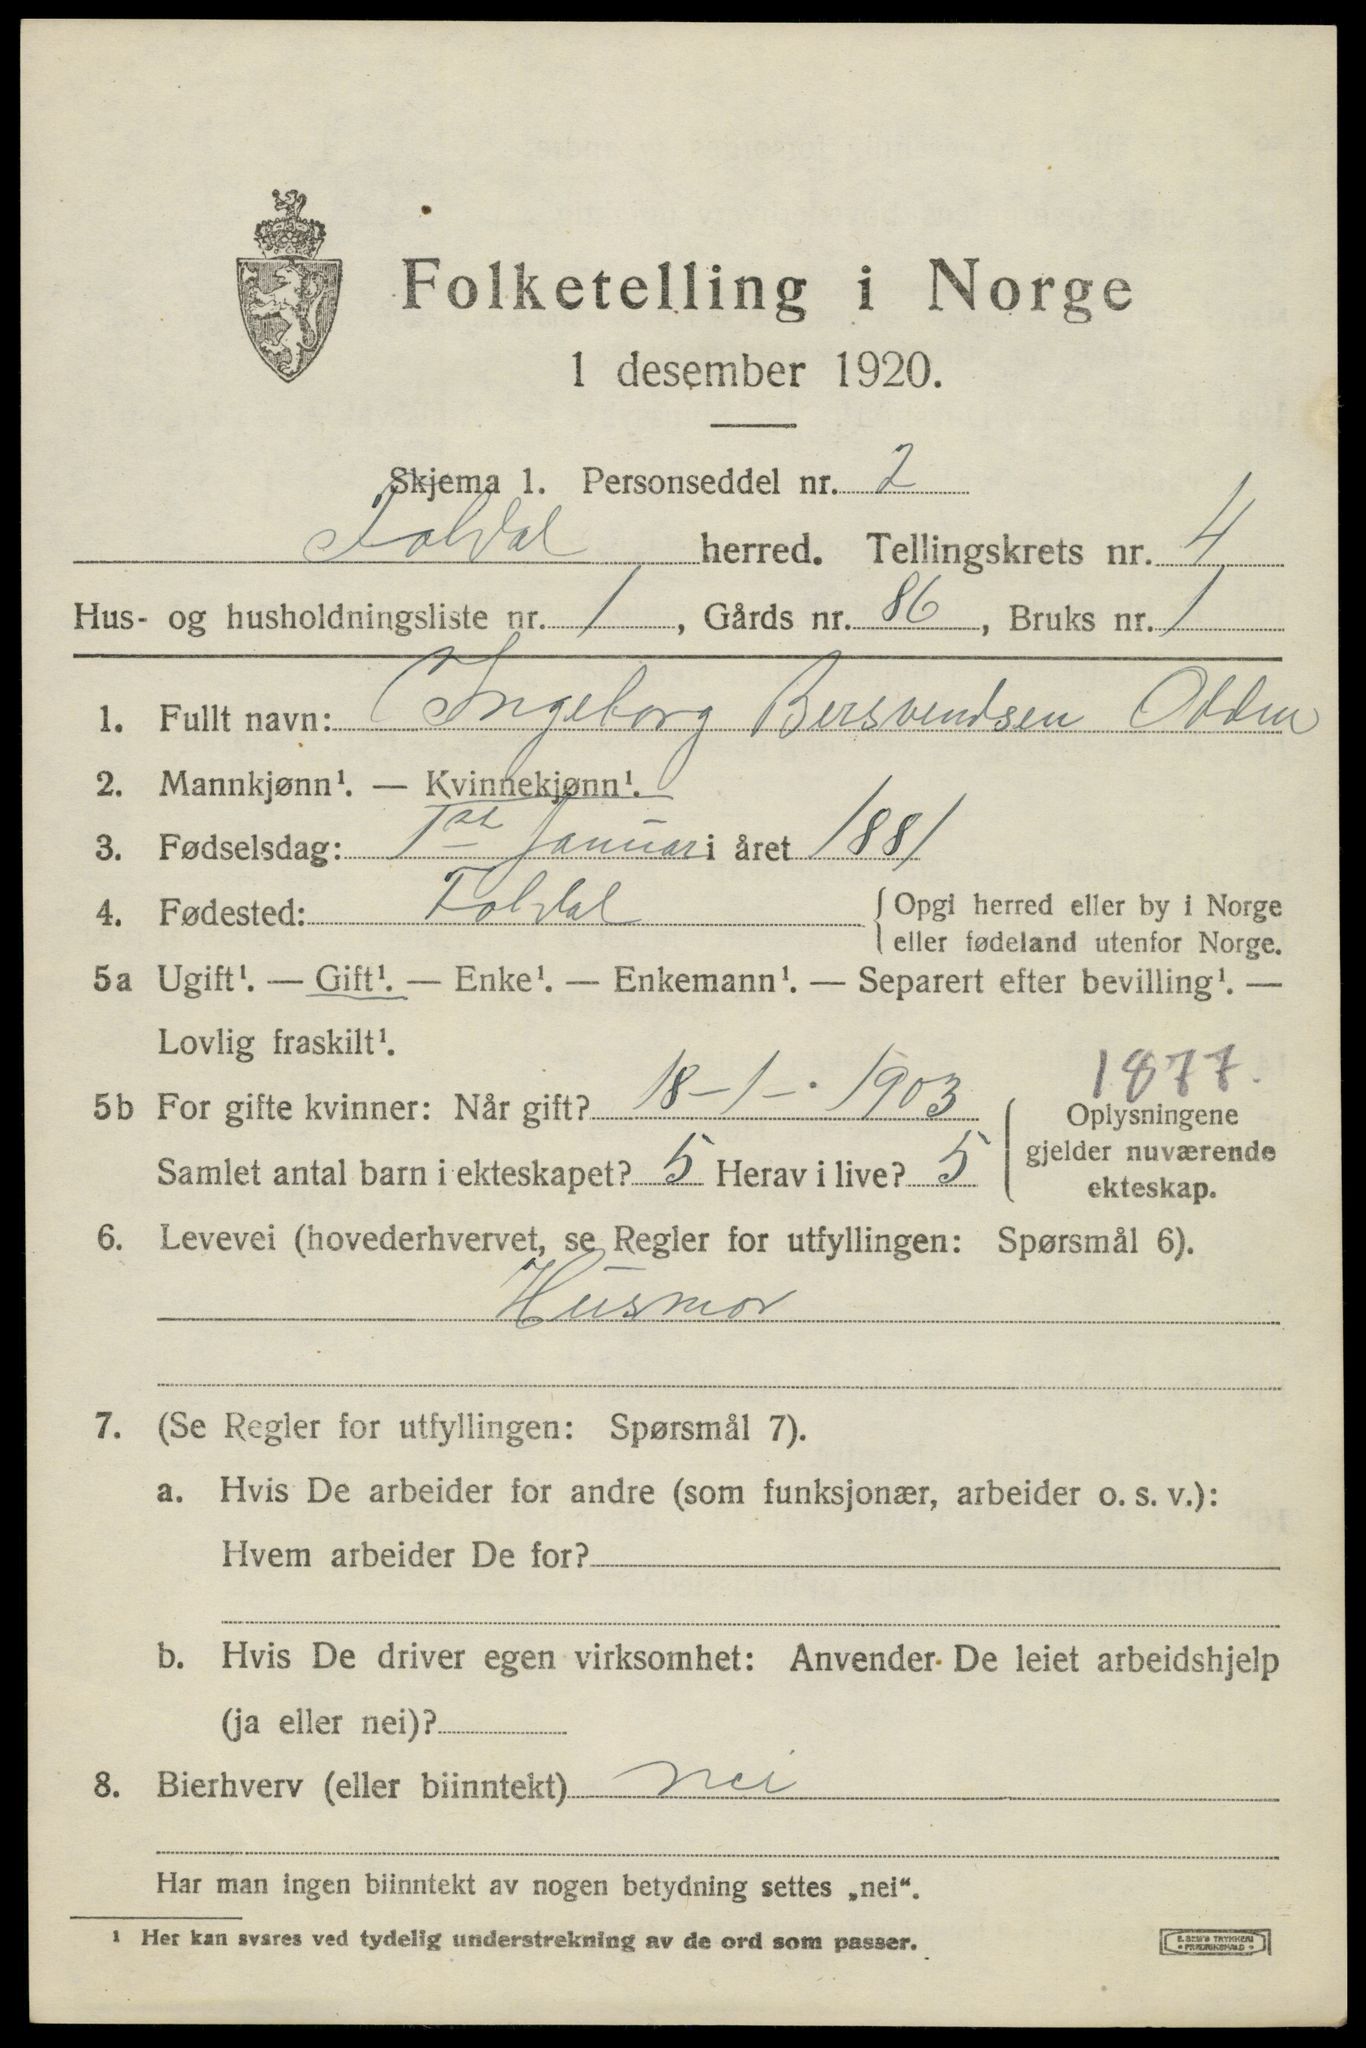 Folketelling i Norge
1 desember 1920.
Skjema 1. Personseddel nr. 2
Foldal herred. Tellingskrets nr. 4
Hus- og husholdningsliste nr. 1, Gårds nr. 86, Bruks nr. 1
1. Fullt navn: Ingeborg Bersvendsen Odden
2. Mannkjønn¹. — Kvinnekjønn¹.
3. Fødselsdag: 1ste Januar i året 1881
4. Fødested: Foldal {Opgi herred eller by i Norge
eller fødeland utenfor Norge.
5a Ugift¹. — Gift¹. — Enke¹. — Enkemann¹. — Separert efter bevilling¹. —
Lovlig fraskilt¹.
1877.
5b For gifte kvinner: Når gift? 18-1-. 1903
Samlet antal barn i ekteskapet? 5 Herav i live? 5
Oplysningene
gjelder nuværende
ekteskap.
6. Levevei (hovederhvervet, se Regler for utfyllingen: Spørsmål 6).
Husmor
7. (Se Regler for utfyllingen: Spørsmål 7).
a. Hvis De arbeider for andre (som funksjonær, arbeider o. s. v.):
Hvem arbeider De for?
b. Hvis De driver egen virksomhet: Anvender De leiet arbeidshjelp
(ja eller nei)?
8. Bierhverv (eller biinntekt) nei
Har man ingen biinntekt av nogen betydning settes „nei“.
¹ Her kan svares ved tydelig understrekning av de ord som passer.
E. SEM'S TRYKKERI
FREDRIKSHALD